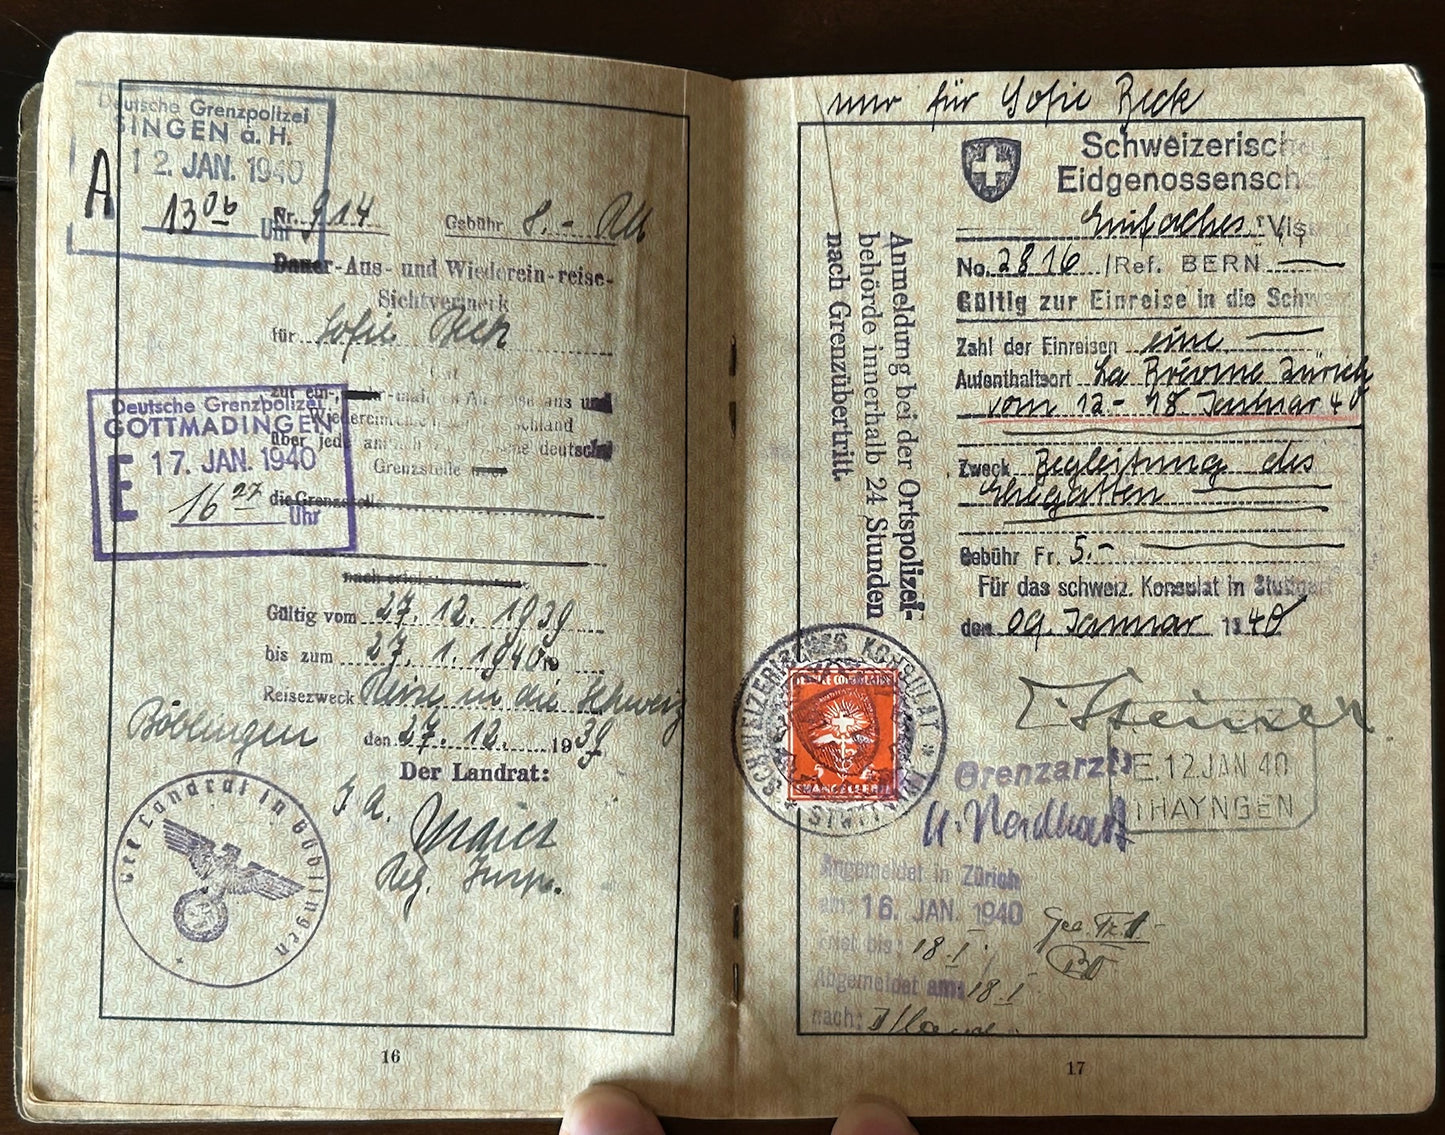 Deutsche Grenzpolizei
SINGEN a. H.
A
12. JAN. 1940
13 06 Uhr
Nr. 914 Gebühr 8.- RM
Dauer-Aus- und Wiederein-reise-
Sichtvermerk
für Sofie Beck
zur ein-, -mal aus und
Wiederein
über jede deutsche
Grenzstelle
Deutsche Grenzpolizei
GOTTMADINGEN
E
17. JAN. 1940
16 27 Uhr
die Grenzstelle
Gültig vom 27. 12. 1939
bis zum 27. 1. 1940
Reisezweck Reise in die Schweiz
Böblingen den 27. 12. 1939
Der Landrat:
I. A.
Reg. Insp.
Der Landrat in Böblingen
16
nur für Sofie Beck
Schweizerische
Eidgenossensch
Einfaches Vis
No. 2816 / Ref. BERN
Gültig zur Einreise in die Schw
Zahl der Einreisen eine
Aufenthaltsort La Brévine Zürich
vom 12 - 18 Januar 40
Zweck Begleitung des
Ehegatten
Gebühr Fr. 5.-
Für das schweiz. Konsulat in Stuttgart
den 09. Januar 1940
Anmeldung bei der Ortspolizei-
behörde innerhalb 24 Stunden
nach Grenzübertritt.
SCHWEIZERISCHES KONSULAT
STUTTGART
5
CHANCELLERIE
Grenzarzt:
E. 12 JAN 40
THAYNGEN
Angemeldet in Zürich
am: 16. JAN. 1940
bis: 18. I.
Abgemeldet am: 18. I.
nach:
17